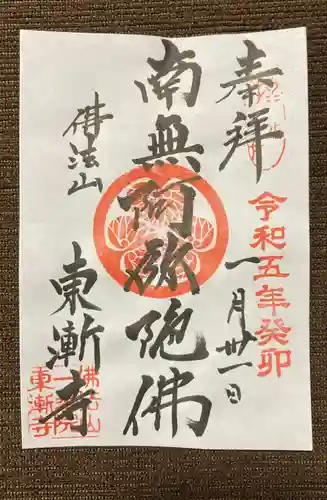 奉拝
令和五年癸卯
一月廿一日
南無阿弥陀佛
佛法山
東漸寺
佛法山
一乗院
東漸寺